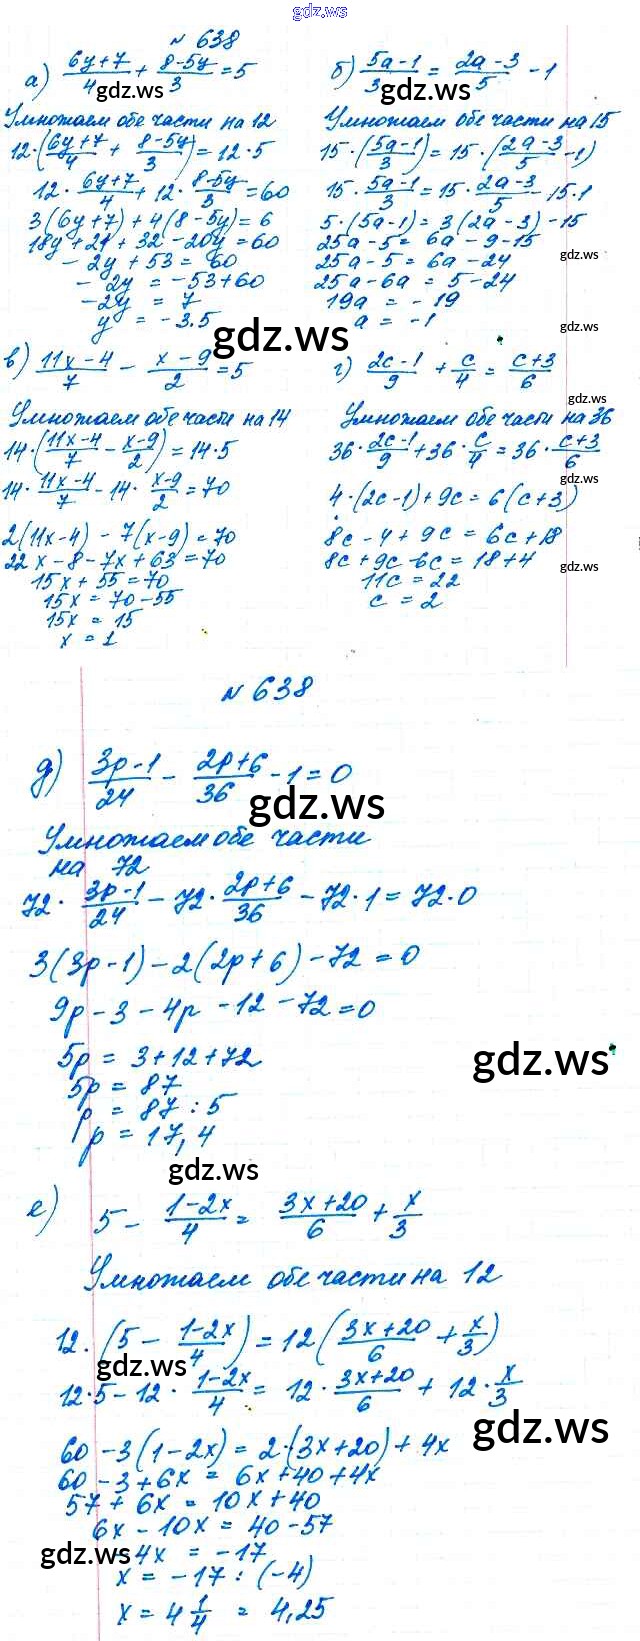 gdz.ws
№ 638
а) (6y+7)/4 + (8-5y)/3 = 5
gdz.ws
Умножаем обе части на 12
12·((6y+7)/4 + (8-5y)/3) = 12·5
12·(6y+7)/4 + 12·(8-5y)/3 = 60
3(6y+7) + 4(8-5y) = 6
18y + 21 + 32 - 20y = 60
- 2y + 53 = 60
- 2y = -53+60
-2y = 7
y = -3.5
gdz.ws
б) (5a-1)/3 = (2a-3)/5 - 1
gdz.ws
Умножаем обе части на 15
15·((5a-1)/3) = 15·((2a-3)/5 - 1)
15·(5a-1)/3 = 15·(2a-3)/5 - 15·1
5·(5a-1) = 3(2a-3) - 15
25a - 5 = 6a - 9 - 15
gdz.ws
25a - 5 = 6a - 24
25a - 6a = 5 - 24
19a = - 19
a = - 1
gdz.ws
в) (11x-4)/7 - (x-9)/2 = 5
Умножаем обе части на 14
14·((11x-4)/7 - (x-9)/2) = 14·5
14·(11x-4)/7 - 14·(x-9)/2 = 70
2(11x-4) - 7(x-9) = 70
22x - 8 - 7x + 63 = 70
15x + 55 = 70
15x = 70-55
15x = 15
x = 1
г) (2c-1)/9 + c/4 = (c+3)/6
gdz.ws
Умножаем обе части на 36
36·(2c-1)/9 + 36·c/4 = 36·(c+3)/6
gdz.ws
4·(2c-1) + 9c = 6(c+3)
8c - 4 + 9c = 6c + 18
8c + 9c - 6c = 18 + 4
gdz.ws
11c = 22
c = 2
№ 638
д) (3p-1)/24 - (2p+6)/36 - 1 = 0
gdz.ws
Умножаем обе части
на 72
72·(3p-1)/24 - 72·(2p+6)/36 - 72·1 = 72·0
3(3p-1) - 2(2p+6) - 72 = 0
9p - 3 - 4p - 12 - 72 = 0
5p = 3+12+72
gdz.ws
5p = 87
p = 87 : 5
p = 17,4
gdz.ws
е) 5 - (1-2x)/4 = (3x+20)/6 + x/3
Умножаем обе части на 12
12·(5 - (1-2x)/4) = 12((3x+20)/6 + x/3)
gdz.ws
12·5 - 12·(1-2x)/4 = 12·(3x+20)/6 + 12·x/3
gdz.ws
60 - 3(1-2x) = 2·(3x+20) + 4x
60 - 3 + 6x = 6x + 40 + 4x
57 + 6x = 10x + 40
6x - 10x = 40 - 57
gdz.ws
-4x = -17
x = -17 : (-4)
x = 4 1/4 = 4,25